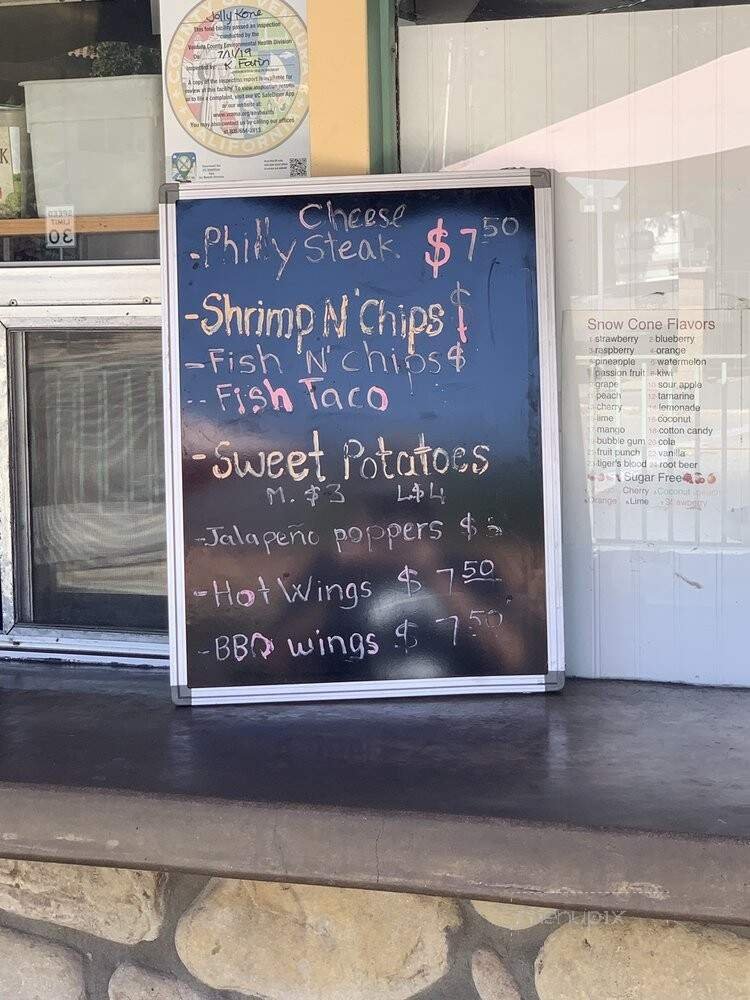 Jolly Kone
This food facility passed an inspection
conducted by the
Ventura County Environmental Health Division
On 7/11/19
Inspected by: K. Farin
A copy of the inspection report is available for
review at this facility. To view inspection results
or to file a complaint, visit our VC SafeDiner App
or our website at:
You may also contact us by calling our offices
CALIFORNIA
SPEED
LIMIT
30
Cheese
-Philly Steak $7 50
-Shrimp N' Chips $
-Fish N' chips $
-- Fish Taco
-Sweet Potatoes
M. $3 L$4
-Jalapeño poppers $
-Hot Wings $ 7 50
-BBQ wings $ 7 50
Snow Cone Flavors
strawberry 2 blueberry
raspberry orange
pineapple watermelon
passion fruit kiwi
grape 10 sour apple
peach 12 tamarine
cherry 14 lemonade
lime 16 coconut
mango 18 cotton candy
bubble gum 20 cola
fruit punch 22 vanilla
tiger's blood 24 root beer
Sugar Free
Cherry Coconut peach
Orange Lime Strawberry
menupix